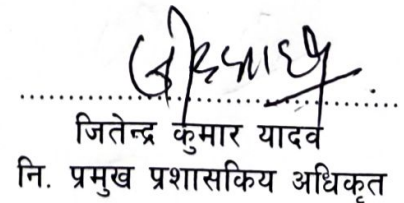 जितेन्द्र कुमार यादव
नि. प्रमुख प्रशासकिय अधिकृत